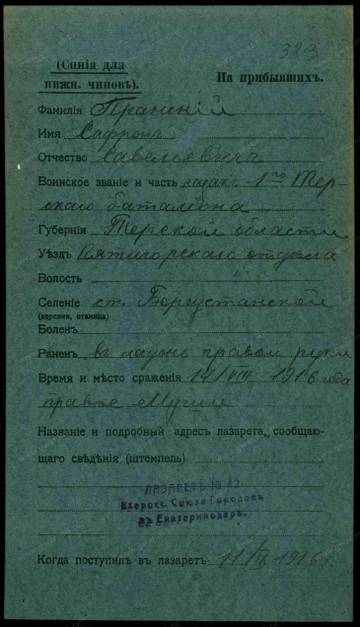 323
(Синія для
нижн. чиновъ).
На прибывшихъ.
Фамилія Пранскій
Имя Сафронъ
Отчество Савельевичъ
Воинское званіе и часть казакъ 1го Тер-
скаго баталіона
Губернія Терской области
Уѣздъ Пятигорскаго отдѣла
Волость
Селеніе ст. Боргустанской
(деревня, станица)
Боленъ
Раненъ въ ладонь правой руки
Время и мѣсто сраженія 14/VIII 1916 года
Названіе и подробный адресъ лазарета, сообщаю-
щаго свѣдѣнія (штемпель)
ЛАЗАРЕТЪ № 42
Всеросс. Союза Городовъ
въ Екатеринодарѣ.
Когда поступилъ въ лазаретъ 11. IX 1916 г.